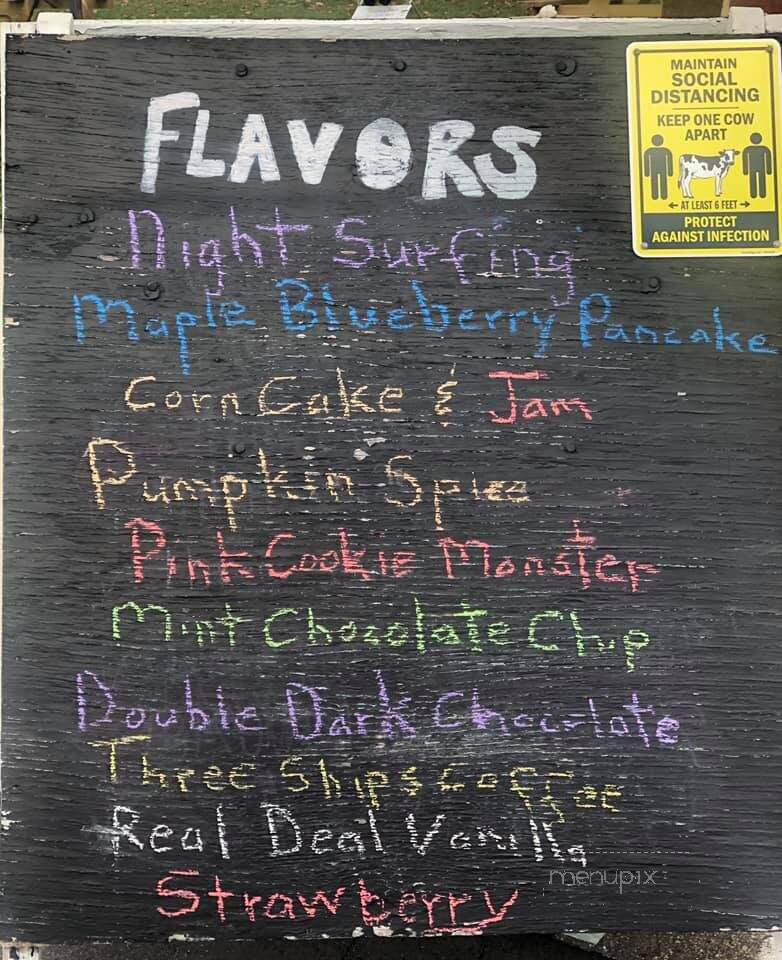 FLAVORS
MAINTAIN
SOCIAL
DISTANCING
KEEP ONE COW
APART
← AT LEAST 6 FEET →
PROTECT
AGAINST INFECTION
Night Surfing
Maple Blueberry Pancake
Corn Cake & Jam
Pumpkin Spice
Pink Cookie Monster
Mint Chocolate Chip
Double Dark Chocolate
Three Ships Coffee
Real Deal Vanilla
Strawberry
menupix